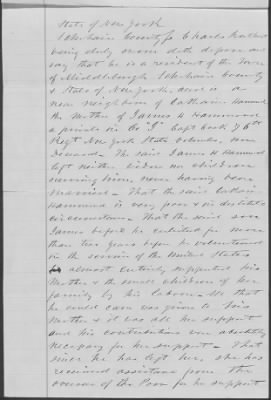 State of New York
Schoharie County ss Charles
being duly sworn doth depose and
say that he is a resident of the Town
of Middleburgh Schoharie County
& State of New York, and is a
near neighbor of Catharine Hammond
the Mother of James H Hammond
a private in Co "I" Capt 76th
Regt New York State Volunteers now
Deceased. The said James H Hammond
left neither widow nor children
surviving him, never having been
married. That the said Catharine
Hammond is very poor & in destitute
circumstances. That the said son
James before he enlisted for more
than two years before he volunteered
in the service of the United States
almost entirely supported his
Mother & the small children of her
family by his labor. All that
he could earn was given to his
Mother & it was all her support
and his contributions were absolutely
necessary for her support. That
since he has left her, she has
received assistance from the
overseer of the Poor for her support